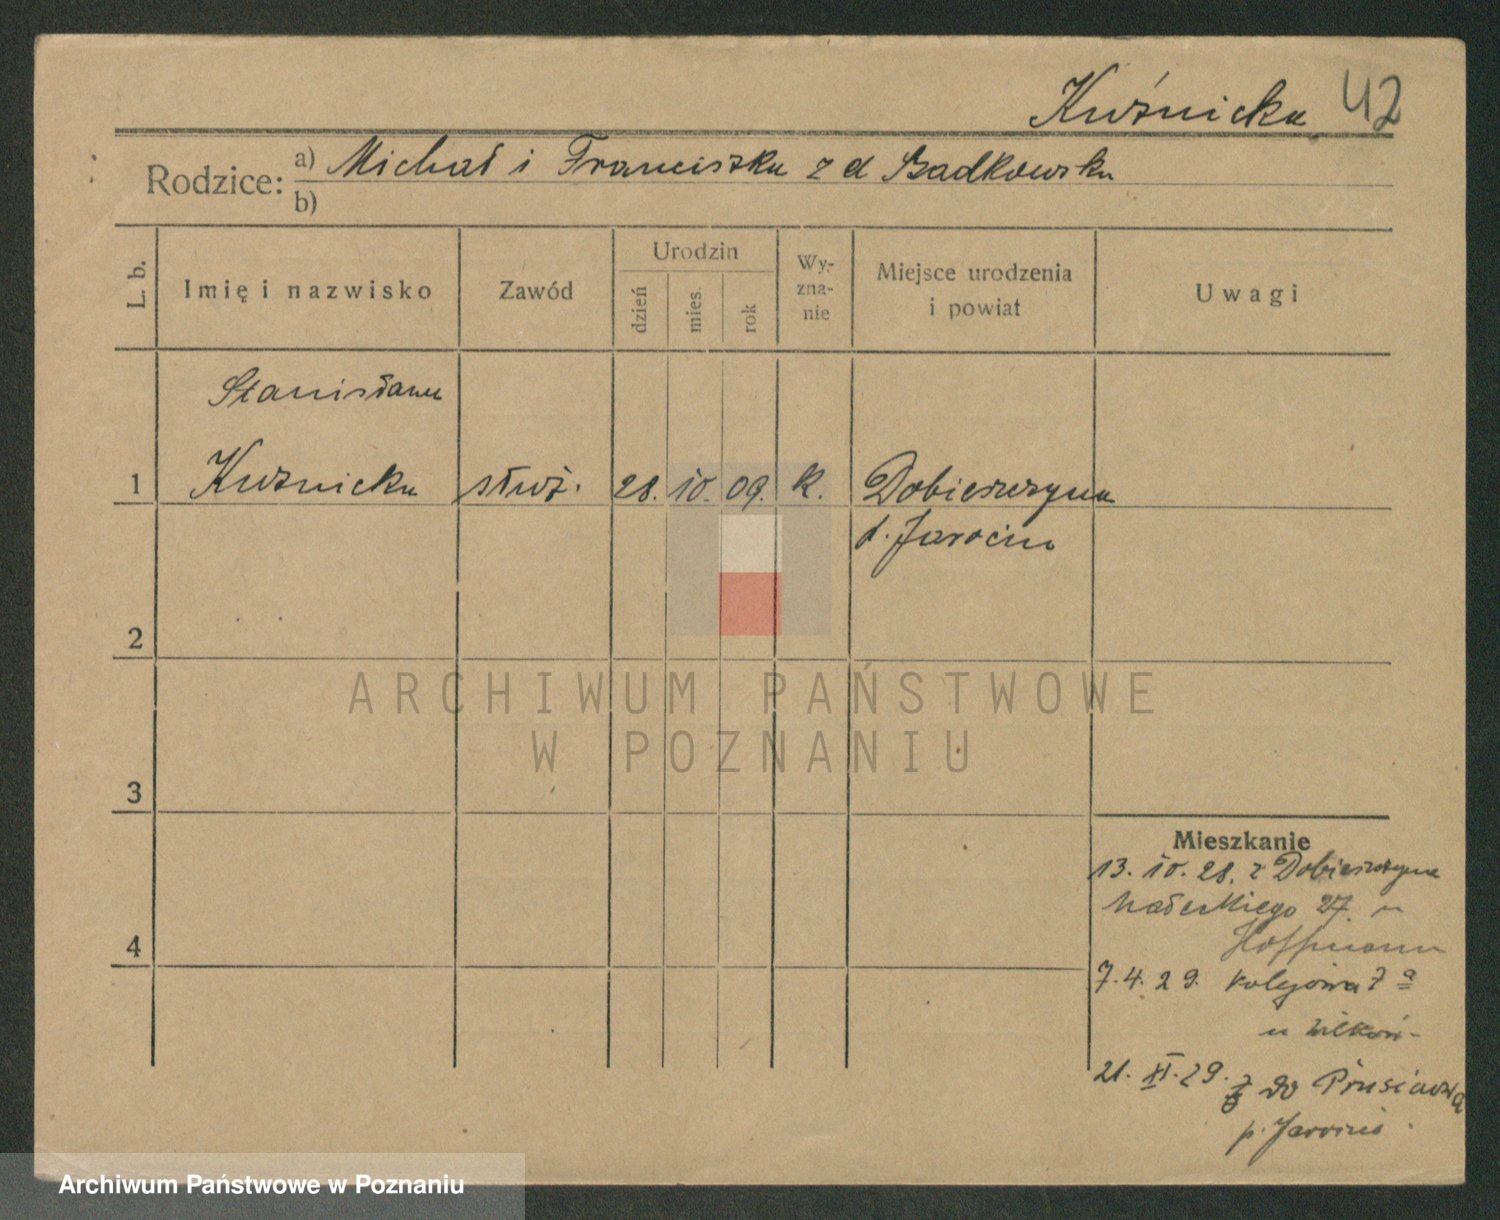 Kuźnicka 42
Rodzice: a) Michał i Franciszka z d Badkowska
b)
L. b.
Imię i nazwisko
Zawód
Urodzin
dzień
mies.
rok
Wy-
zna-
nie
Miejsce urodzenia
i powiat
Uwagi
Stanisława
1 Kuznicka służ. 28. 10. 09. k. Dobieszczyna
p. Jarocin
2
ARCHIWUM PAŃSTWOWE
W POZNANIU
3
Mieszkanie
13. 10. 28. z Dobieszczyna
Małeckiego 27. u
Hoffmann
4
7. 4. 29. Kolejowa 7 a
u
21. XI. 29. do Prusinowa
p. Jarocin
Archiwum Państwowe w Poznaniu